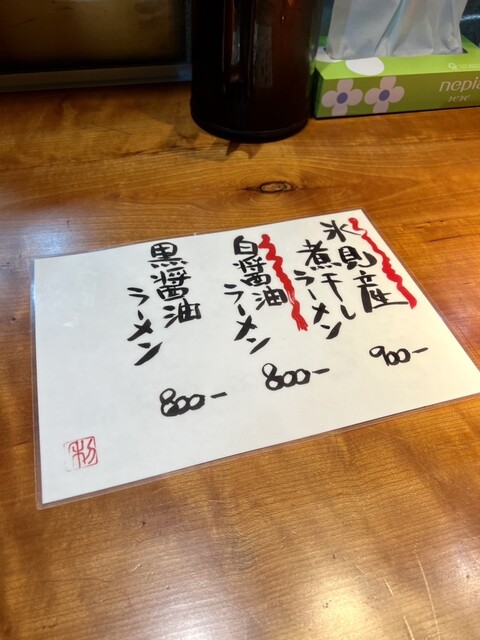 氷見産
煮干し
ラーメン
900-
白醤油
ラーメン
800-
黒醤油
ラーメン
800-
杉
nepia